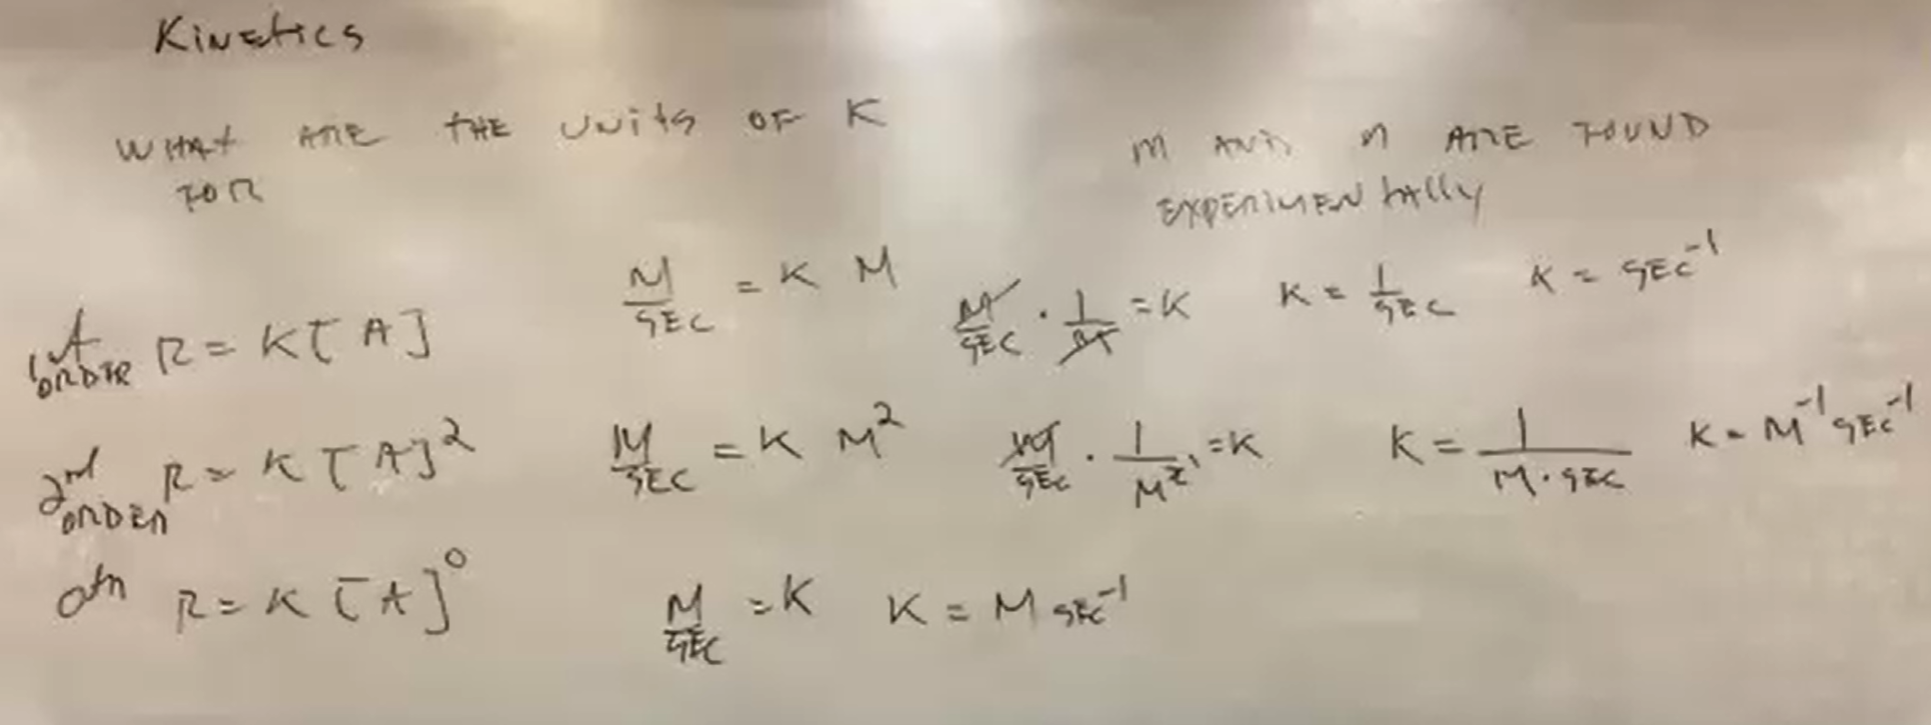 Kinetics
WHAT ARE THE UNITS OF K
FOR
M AND N ARE FOUND
EXPERIMENTALLY
1st ORDER R = K[A] M/SEC = K M M/SEC · 1/M = K K = 1/SEC K = SEC⁻¹
2nd ORDER R = K[A]² M/SEC = K M² M/SEC · 1/M² = K K = 1/M·SEC K = M⁻¹ SEC⁻¹
0th R = K[A]⁰ M/SEC = K K = M SEC⁻¹